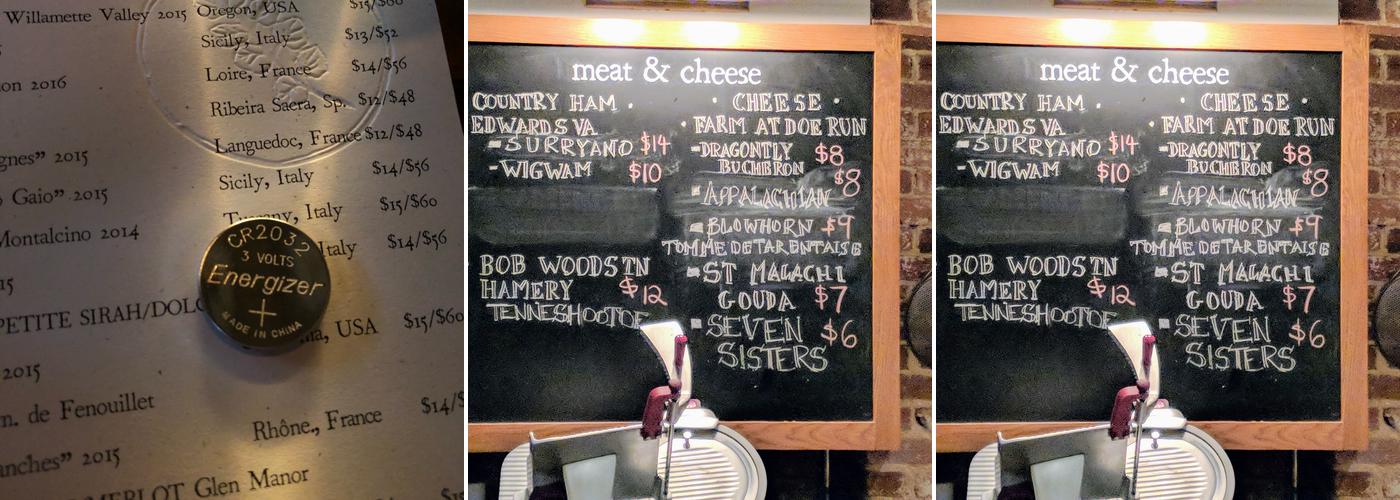 Willamette Valley 2015 Oregon, USA $15/$60
Sicily, Italy $13/$52
2016 Loire, France $14/$56
Ribeira Sacra, Sp. $12/$48
Languedoc, France $12/$48
2015 Sicily, Italy $14/$56
Gaio” 2015 Tuscany, Italy $15/$60
Montalcino 2014 Italy $14/$56
CR2032
3 VOLTS
Energizer
+
MADE IN CHINA
PETITE SIRAH/DOLC
USA $15/$60
2015
de Fenouillet
Rhône., France $14/$
2015
MERLOT Glen Manor
meat & cheese
COUNTRY HAM .
EDWARDS VA
-SURRYANO $14
-WIGWAM $10
BOB WOODS TN
HAMERY $12
TENNESHOOTOE
· CHEESE ·
· FARM AT DOE RUN
-DRAGONTLY $8
BUCHERON
-APPALACHIAN $8
-BLOWHORN $9
TOMME DE TARENTAISE
-ST MALACHI
GOUDA $7
-SEVEN $6
SISTERS
meat & cheese
COUNTRY HAM .
EDWARDS VA
-SURRYANO $14
-WIGWAM $10
BOB WOODS TN
HAMERY $12
TENNESHOOTOE
· CHEESE ·
· FARM AT DOE RUN
-DRAGONTLY $8
BUCHERON
-APPALACHIAN $8
-BLOWHORN $9
TOMME DE TARENTAISE
-ST MALACHI
GOUDA $7
-SEVEN $6
SISTERS